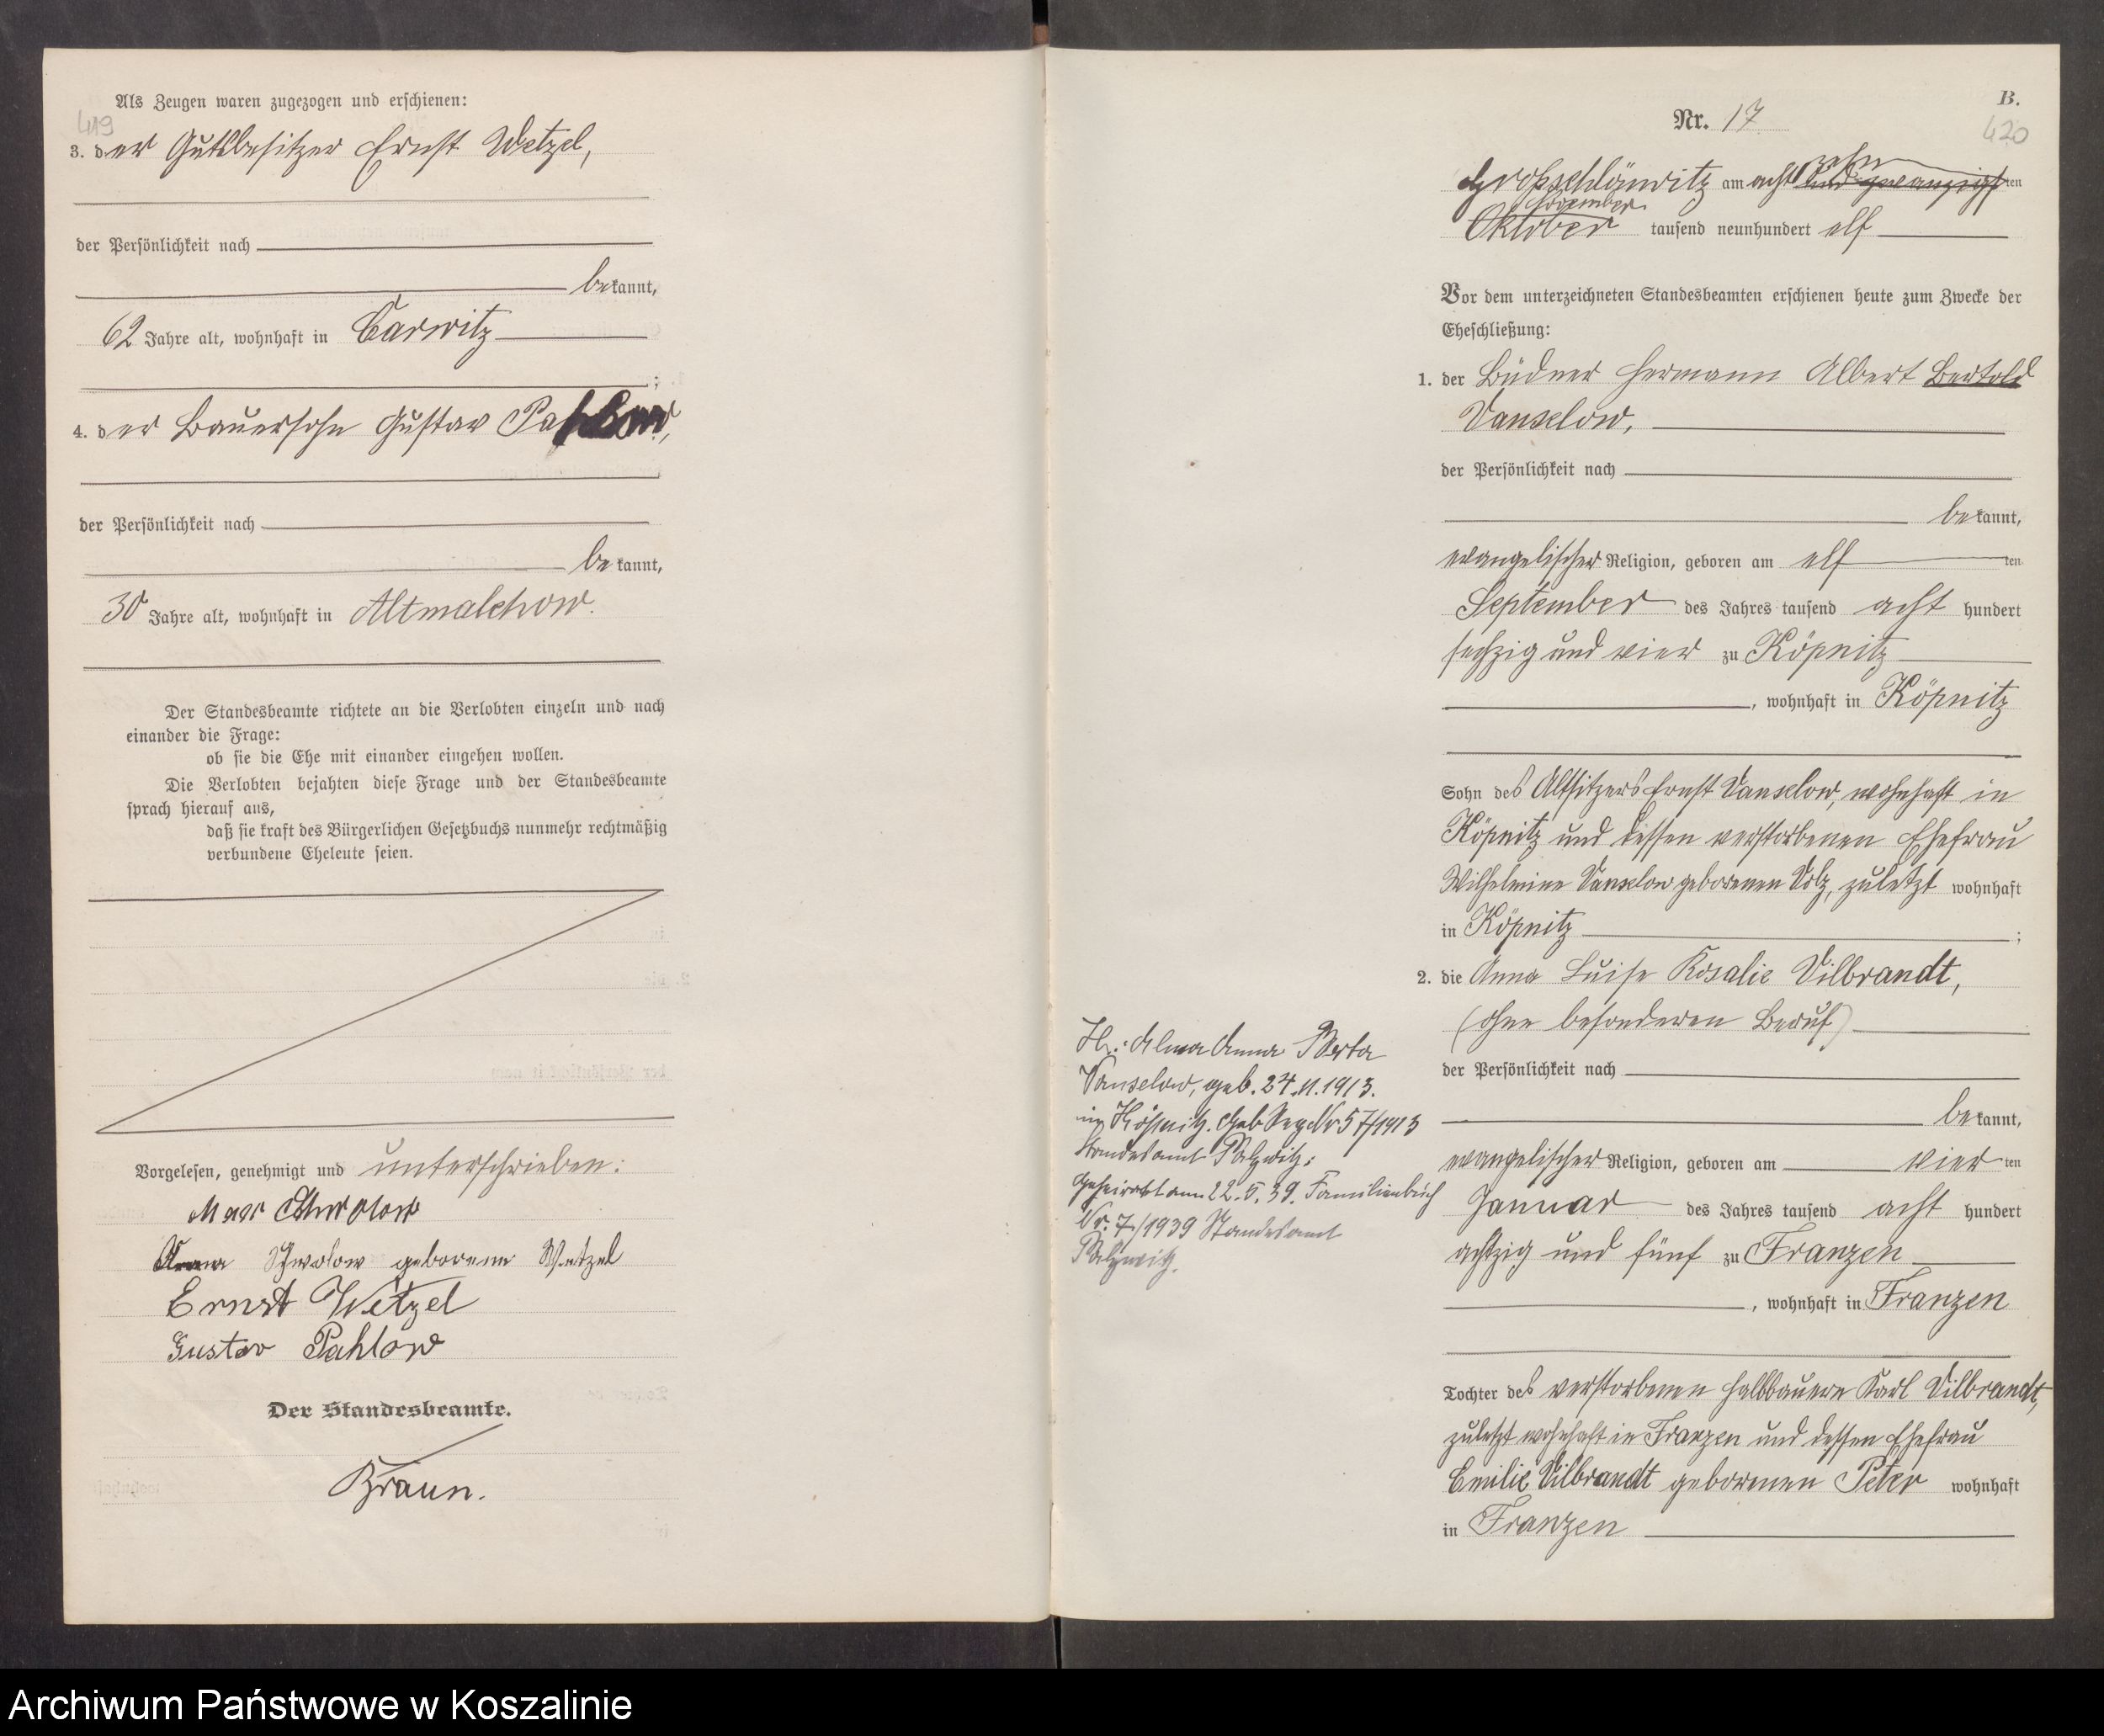 Als Zeugen waren zugezogen und erschienen:
419
3. der Gutsbesitzer Ernst Wetzel,
der Persönlichkeit nach
bekannt,
62 Jahre alt, wohnhaft in Carwitz
;
4. der Bauersohn Gustav Pahlow,
der Persönlichkeit nach
bekannt,
30 Jahre alt, wohnhaft in Altmalchow.
Der Standesbeamte richtete an die Verlobten einzeln und nach
einander die Frage:
ob sie die Ehe mit einander eingehen wollen.
Die Verlobten bejahten diese Frage und der Standesbeamte
sprach hierauf aus,
daß sie kraft des Bürgerlichen Gesetzbuchs nunmehr rechtmäßig
verbundene Eheleute seien.
Vorgelesen, genehmigt und unterschrieben:
Max
Anna geborene Wetzel
Ernst Wetzel
Gustav Pahlow
Der Standesbeamte.
Braun.
B.
Nr. 17
420
zehn
Großschlönwitz am acht und zwanzigsten
November
Oktober tausend neunhundert elf
Vor dem unterzeichneten Standesbeamten erschienen heute zum Zwecke der
Eheschließung:
1. der Büdner Hermann Albert Bertold
Vanselow,
der Persönlichkeit nach
bekannt,
evangelischer Religion, geboren am elf ten
September des Jahres tausend acht hundert
sechzig und vier zu Köpnitz
, wohnhaft in Köpnitz
Sohn des Altsitzers Ernst Vanselow, wohnhaft in
Köpnitz und dessen verstorbenen Ehefrau
Wilhelmine Vanselow geborenen Volz, zuletzt wohnhaft
in Köpnitz ;
2. die Anna Luise Rosalie Vilbrandt,
(ohne besonderen Beruf)
der Persönlichkeit nach
bekannt,
evangelischer Religion, geboren am vier ten
Januar des Jahres tausend acht hundert
achtzig und fünf zu Franzen
, wohnhaft in Franzen
Tochter des verstorbenen Halbbauern Karl Vilbrandt,
zuletzt wohnhaft in Franzen und dessen Ehefrau
Emilie Vilbrandt geborenen Peter wohnhaft
in Franzen
Alma Anna Berta
Vanselow, geb. 24.11.1913.
in Köpnitz. Geb Reg Nr 57/1913
Standesamt Palzwitz:
Geheiratet am 22.5.39. Familienbuch
Nr. 7/1939 Standesamt
Palzwitz.
Archiwum Państwowe w Koszalinie